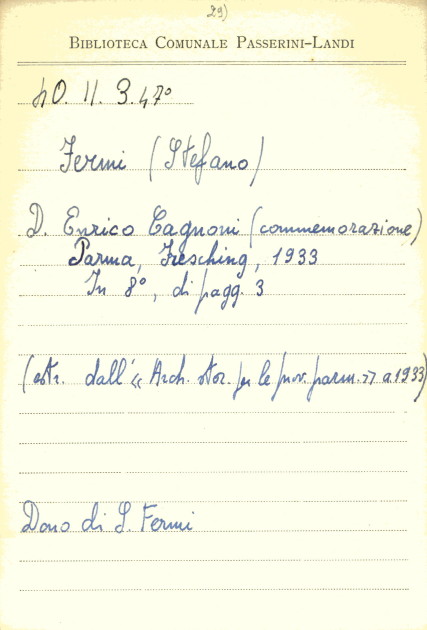 29)
BIBLIOTECA COMUNALE PASSERINI-LANDI
40. II. 3. 47º
Fermi (Stefano)
D. Enrico Cagnoni (commemorazione)
Parma, Fresching, 1933
In 8º, di pagg. 3
(estr. dall'« Arch. stor. per le prov. parm. » a. 1933)
Dono di S. Fermi